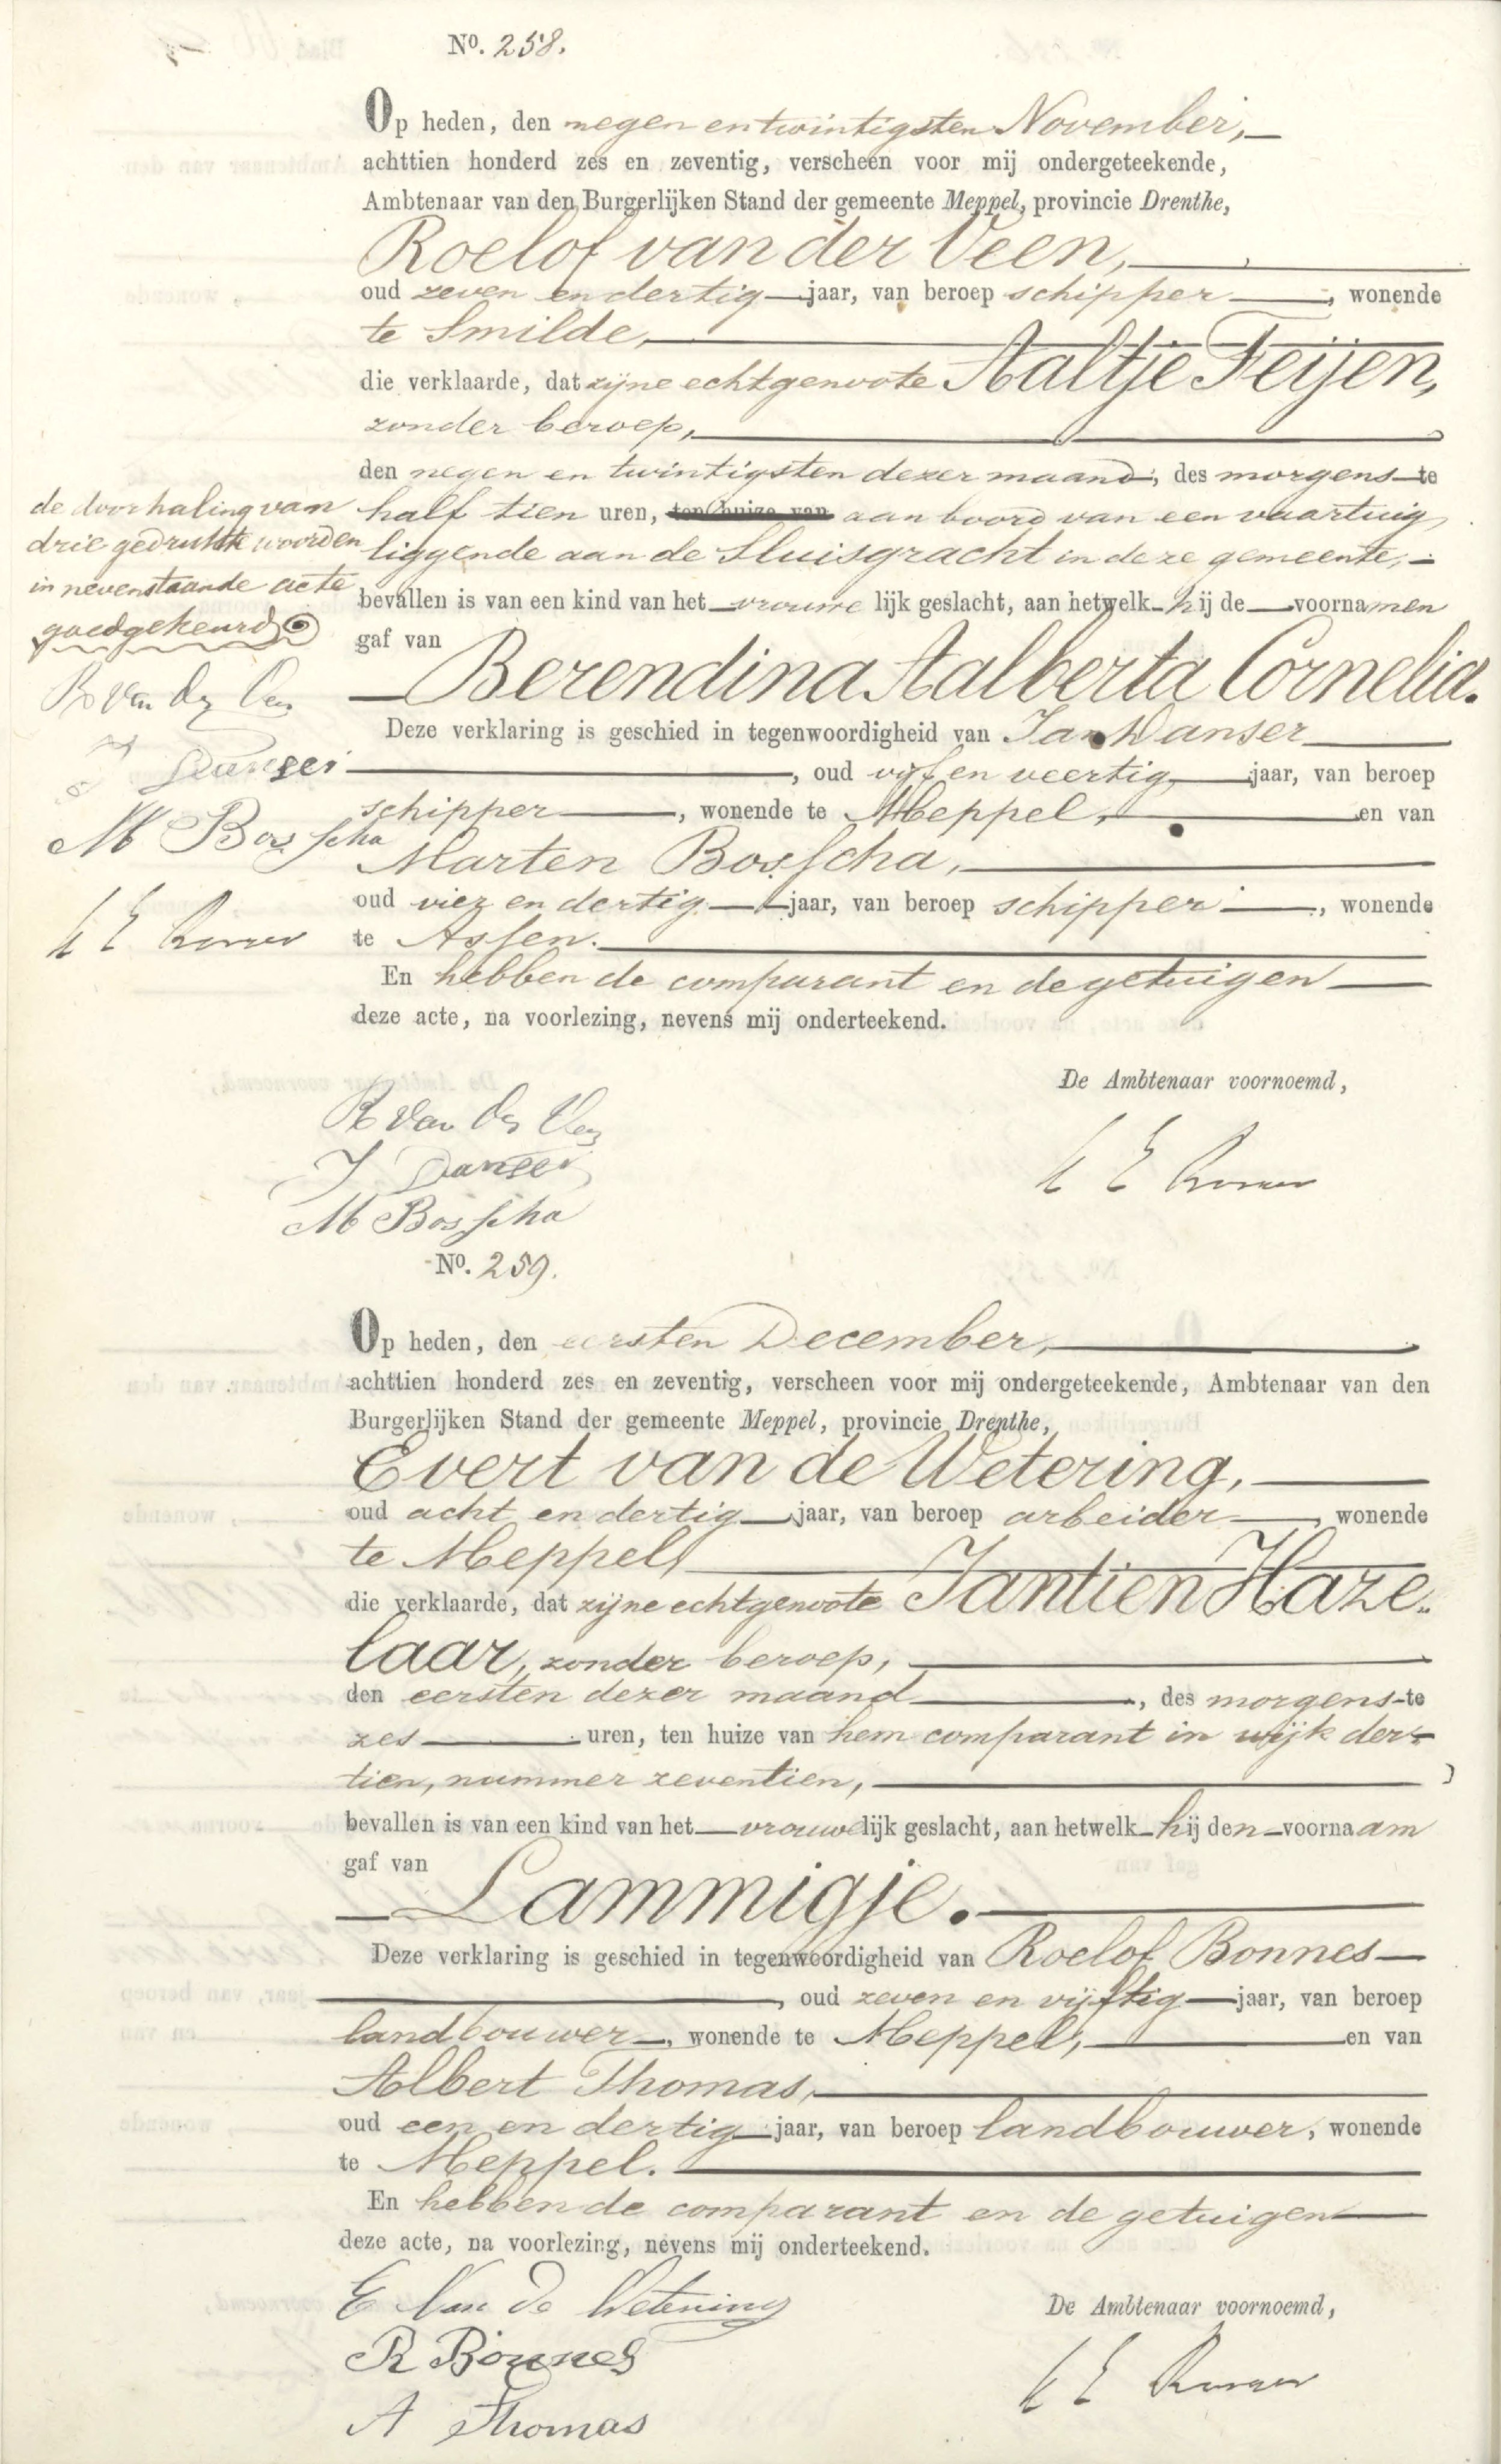 No. 258.
Op heden, den negen en twintigsten November,
achttien honderd zes en zeventig, verscheen voor mij ondergeteekende,
Ambtenaar van den Burgerlijken Stand der gemeente Meppel, provincie Drenthe,
Roelof van der Veen,
oud zeven en dertig jaar, van beroep schipper, wonende
te Smilde,
die verklaarde, dat zijne echtgenoote Aaltje Feijen,
zonder beroep,
den negen en twintigsten dezer maand, des morgens te
half tien uren, ten huize van aan boord van een vaartuig
liggende aan de Sluisgracht in deze gemeente,
bevallen is van een kind van het vrouwelijk geslacht, aan hetwelk hij de voornamen
gaf van
Berendina Aalberta Cornelia.
Deze verklaring is geschied in tegenwoordigheid van Jan Danser
, oud vijf en veertig jaar, van beroep
schipper, wonende te Meppel, en van
Marten Bosscha,
oud vier en dertig jaar, van beroep schipper, wonende
te Assen.
En hebben de comparant en de getuigen
deze acte, na voorlezing, nevens mij onderteekend.
de doorhaling van
drie gedrukte woorden
in nevenstaande acte
goedgekeurd
R van der Veen
J Danser
M Bosscha
De Ambtenaar voornoemd,
R van der Veen
J Danser
M Bosscha
No. 259.
Op heden, den eersten December,
achttien honderd zes en zeventig, verscheen voor mij ondergeteekende, Ambtenaar van den
Burgerlijken Stand der gemeente Meppel, provincie Drenthe,
Evert van de Wetering,
oud acht en dertig jaar, van beroep arbeider, wonende
te Meppel,
die verklaarde, dat zijne echtgenoote Jantien Haze-
laar, zonder beroep,
den eersten dezer maand, des morgens te
zes uren, ten huize van hem comparant in wijk der-
tien, nummer zeventien,
bevallen is van een kind van het vrouwelijk geslacht, aan hetwelk hij den voornaam
gaf van
Lammigje.
Deze verklaring is geschied in tegenwoordigheid van Roelof Bonnes
, oud zeven en vijftig jaar, van beroep
landbouwer, wonende te Meppel, en van
Albert Thomas,
oud een en dertig jaar, van beroep landbouwer, wonende
te Meppel.
En hebben de comparant en de getuigen
deze acte, na voorlezing, nevens mij onderteekend.
E Van de Wetering
De Ambtenaar voornoemd,
R Bonnes
A Thomas